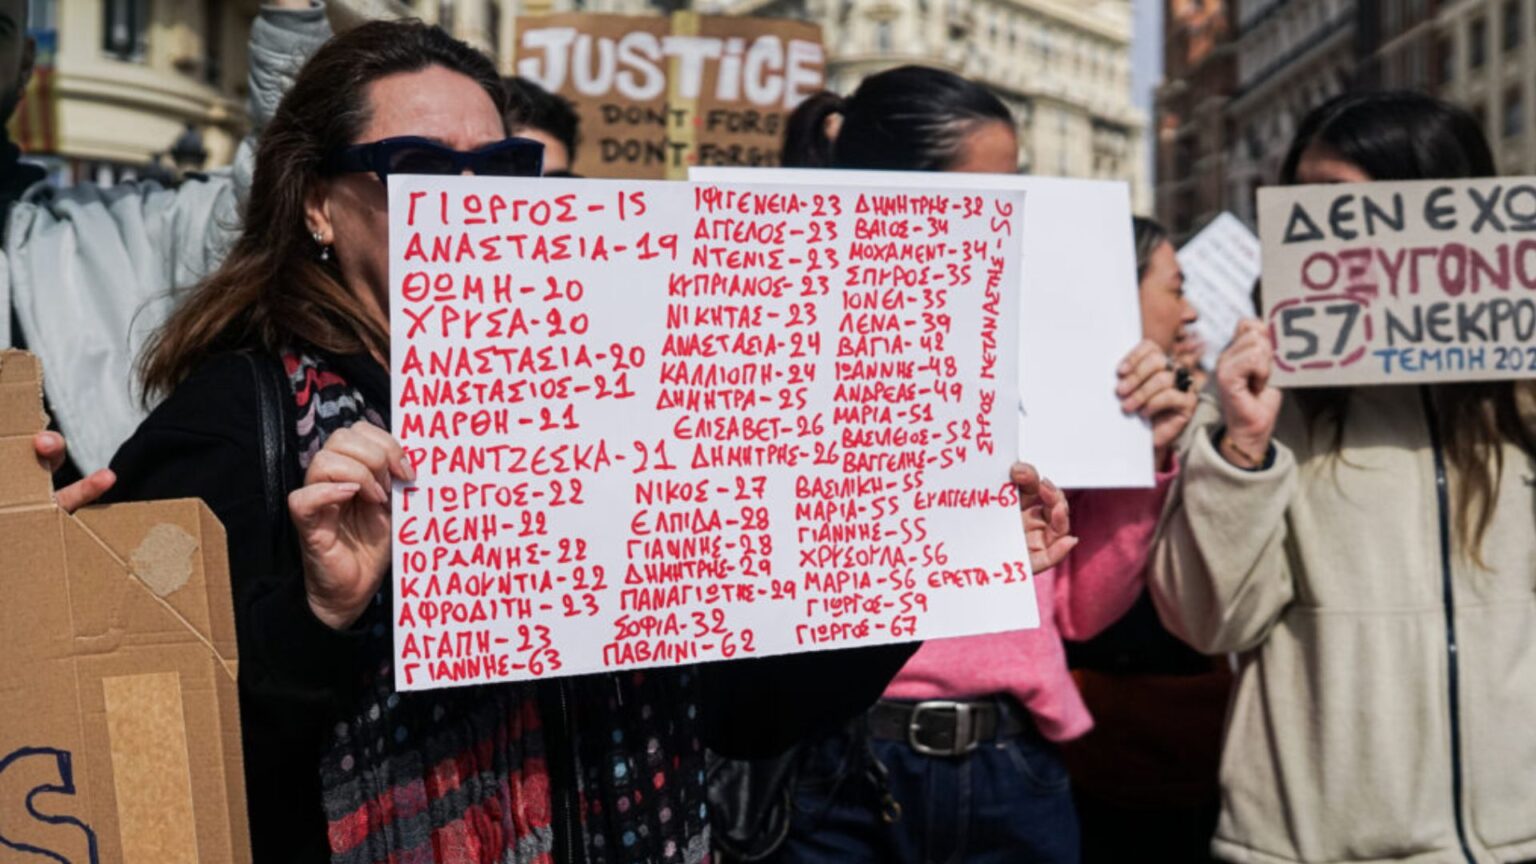 JUSTICE
DON'T FORG
DON'T FORGI
ΓΙΩΡΓΟΣ-15
ΑΝΑΣΤΑΣΙΑ-19
ΘΩΜΗ-20
ΧΡΥΣΑ-20
ΑΝΑΣΤΑΣΙΑ-20
ΑΝΑΣΤΑΣΙΟΣ-21
ΜΑΡΘΗ-21
ΦΡΑΝΤΖΕΣΚΑ-21
ΓΙΩΡΓΟΣ-22
ΕΛΕΝΗ-22
ΙΟΡΔΑΝΗΣ-22
ΚΛΑΟΥΝΤΙΑ-22
ΑΦΡΟΔΙΤΗ-23
ΑΓΑΠΗ-23
ΓΙΑΝΝΗΣ-63
ΙΦΙΓΕΝΕΙΑ-23
ΑΓΓΕΛΟΣ-23
ΝΤΕΝΙΣ-23
ΚΥΠΡΙΑΝΟΣ-23
ΝΙΚΗΤΑΣ-23
ΑΝΑΣΤΑΣΙΑ-24
ΚΑΛΛΙΟΠΗ-24
ΔΗΜΗΤΡΑ-25
ΕΛΙΣΑΒΕΤ-26
ΔΗΜΗΤΡΗΣ-26
ΝΙΚΟΣ-27
ΕΛΠΙΔΑ-28
ΓΙΑΝΝΗΣ-28
ΔΗΜΗΤΡΗΣ-29
ΠΑΝΑΓΙΩΤΗΣ-29
ΣΟΦΙΑ-32
ΠΑΒΛΙΝΙ-62
ΔΗΜΗΤΡΗΣ-32
ΒΑΙΟΣ-34
ΜΟΧΑΜΕΝΤ-34
ΣΠΥΡΟΣ-35
ΙΟΝΕΛ-35
ΛΕΝΑ-39
ΒΑΓΙΑ-42
ΙΩΑΝΝΗΣ-48
ΑΝΔΡΕΑΣ-49
ΜΑΡΙΑ-51
ΒΑΣΙΛΕΙΟΣ-52
ΒΑΓΓΕΛΗΣ-54
ΒΑΣΙΛΙΚΗ-55
ΜΑΡΙΑ-55 ΕΥΑΓΓΕΛΙΑ-63
ΓΙΑΝΝΗΣ-55
ΧΡΥΣΟΥΛΑ-56
ΜΑΡΙΑ-56 ΕΡΙΕΤΤΑ-23
ΓΙΩΡΓΟΣ-59
ΓΙΩΡΓΟΣ-67
ΣΥΡΟΣ ΜΕΤΑΝΑΣΤΗΣ
ΔΕΝ ΕΧΩ
ΟΞΥΓΟΝΟ
57 ΝΕΚΡΟ
ΤΕΜΠΗ 202